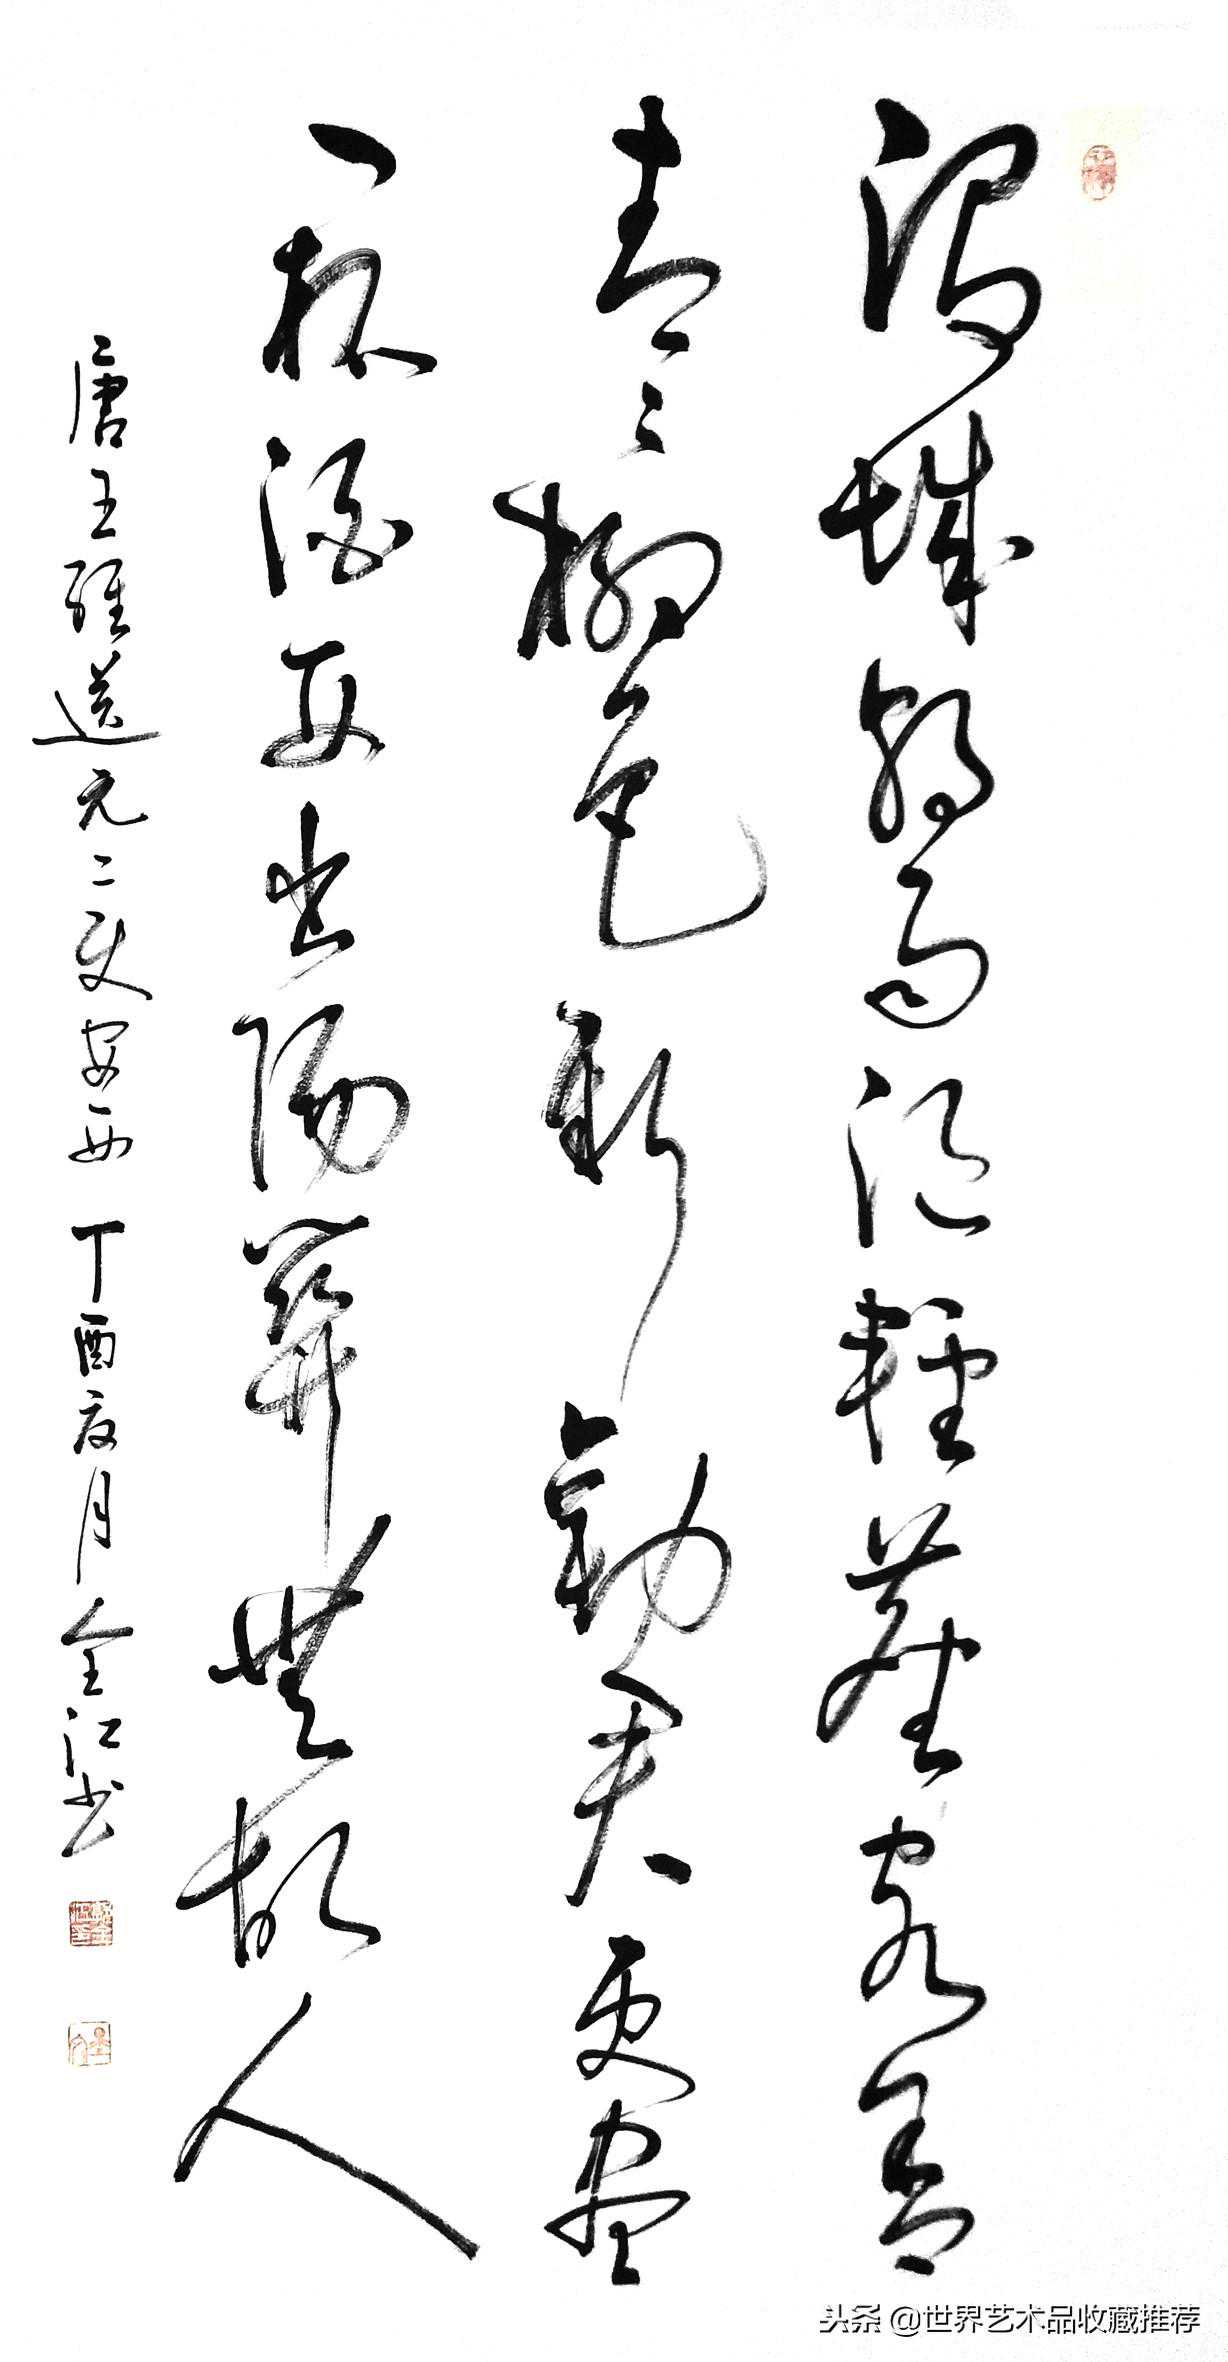 渭城朝雨浥輕塵客舍
青々柳色新勸君更盡
一杯酒西出陽關無故人
唐王維送元二使安西 丁酉夏月全江书
头条 @世界艺术品收藏推荐